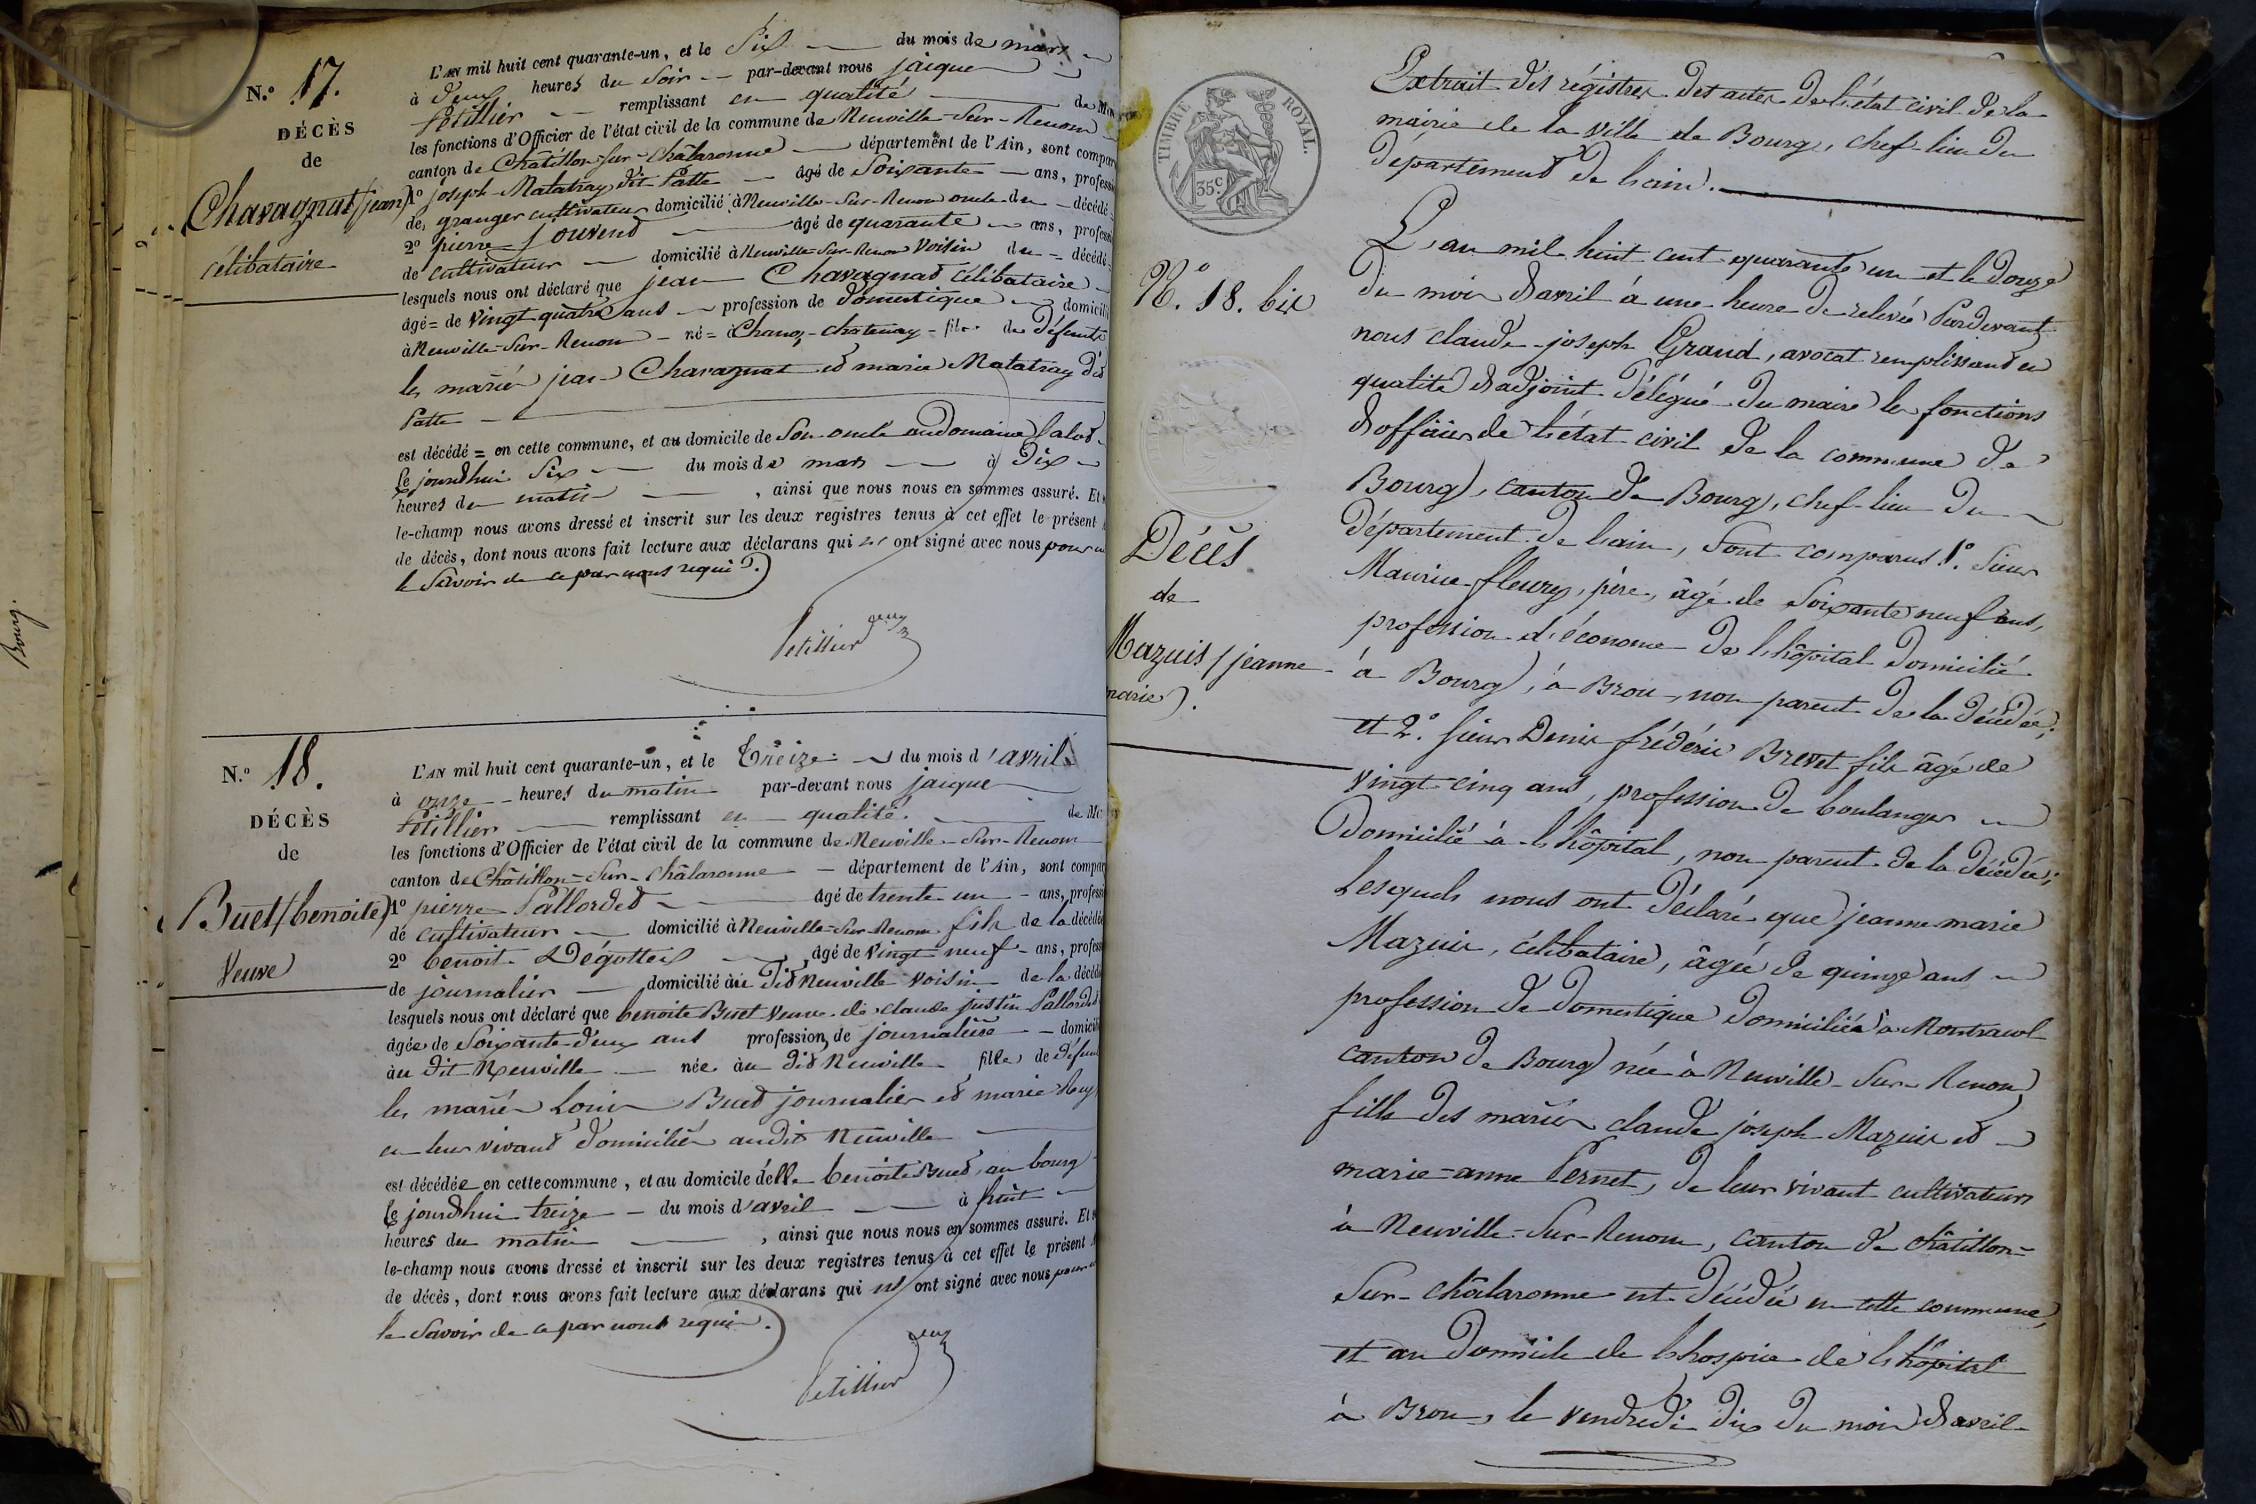 Bourg.
N.o 17.
DÉCÈS
de
Chavagnat (jean)
célibataire
L'AN mil huit cent quarante-un, et le Six du mois de mars
à deux heures du Soir par-devant nous jaique
Petillier remplissant en qualité de
les fonctions d'Officier de l'état civil de la commune de Neuville-Sur-Renom
canton de Châtillon-Sur-Châlaronne département de l'Ain, sont
1o joseph Matatray dit Patte âgé de Soixante ans,
de granger cultivateur domicilié à Neuville-Sur-Renom oncle du décédé
2o pierre Jouvend âgé de quarante ans,
de cultivateur domicilié à Neuville-Sur-Renon voisin du = décédé
lesquels nous ont déclaré que jean Chavagnat Célibataire
âgé = de vingt quatre ans profession de domestique
à Neuville-Sur-Renom né = à Chanoz-chatenay = fils de défunts
les mariés jean Chavagnat et marie Matatray dit
Patte
est décédé = en cette commune, et au domicile de Son oncle au domaine
ce jourd'hui Six du mois de mars à Dix
heures du matin , ainsi que nous nous en sommes assuré.
le-champ nous avons dressé et inscrit sur les deux registres tenus à cet effet le présent
de décès, dont nous avons fait lecture aux déclarans qui ont signé avec nous pour
le Savoir de ce par nous requis.
Petillier
N.o 18.
DÉCÈS
de
Buet (benoite)
Veuve
L'AN mil huit cent quarante-un, et le treize du mois d'avril
à onze heures du matin par-devant nous jaique
Petillier remplissant en qualité de
les fonctions d'Officier de l'état civil de la commune de Neuville-Sur-Renom
canton de Châtillon-Sur-Châlaronne département de l'Ain, sont
1o pierre Pallordet âgé de trente un ans,
de cultivateur domicilié à Neuville-Sur-Renom fils de la décédée
2o benoit Dégottex âgé de vingt neuf ans,
de journalier domicilié au dit Neuville voisin de la
lesquels nous ont déclaré que benoite Buet veuve de claude justin Pallordet
âgée de Soixante-deux ans profession de journalière
au dit Neuville née au dit Neuville fille de
les mariés Louis Buet journalier et marie Rey
en leur vivant domiciliés audit Neuville
est décédée en cette commune, et au domicile d'elle benoite Buet, au bourg
ce jourd'hui treize du mois d'avril à huit
heures du matin , ainsi que nous nous en sommes assuré.
le-champ nous avons dressé et inscrit sur les deux registres tenus à cet effet le présent
de décès, dont nous avons fait lecture aux déclarans qui ont signé avec nous pour
le Savoir de ce par nous requis.
Petillier
TIMBRE ROYAL.
35c.
N.o 18. bis
Décès
de
Mazuis (jeanne
marie).
Extrait des régistres des actes de l'état civil de la
mairie de la ville de Bourg, chef-lieu du
département de l'ain.
L'an mil huit cent quarante un et le douze
du mois d'avril à une heure de relevée Pardevant
nous claude-joseph Grand, avocat remplissant en
qualité d'adjoint délégué du maire les fonctions
d'officier de l'état civil de la commune de
Bourg, canton de Bourg, chef-lieu du
département de l'ain, sont comparus 1.o Sieur
Maurice fleury, père, âgé de Soixante neuf ans,
profession d'économe de l'hôpital domicilié
à Bourg, à Brou, non parent de la décédée;
et 2.o sieur Denis frédéric Brevet fils âgé de
vingt cinq ans, profession de boulanger
domicilié à l'hôpital, non parent de la décédée;
Lesquels nous ont déclaré que jeanne-marie
Mazuis, célibataire, âgée de quinze ans
profession de domestique domiciliée à Montracol
canton de Bourg née à Neuville-Sur-Renom,
fille des mariés claude joseph Mazuis et
marie-anne Pernet, de leur vivant cultivateurs
à Neuville-Sur-Renom, canton de châtillon-
Sur-châlaronne est décédée en cette commune,
et au domicile de l'hospice de l'hôpital
à Brou, le vendredi dix du mois d'avril